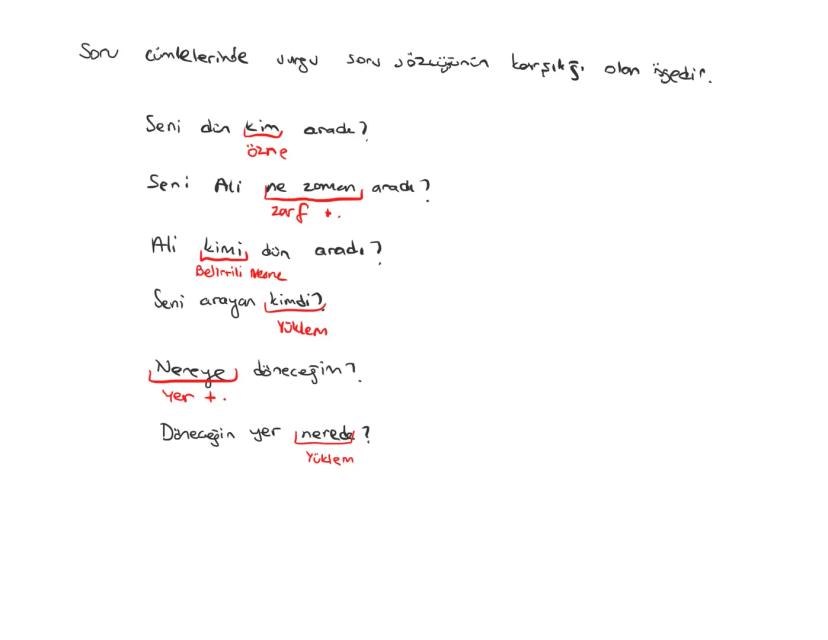 Soru cümlelerinde vurgu soru sözcüğünün karşılığı olan ögedir.
Seni dün kim aradı?
özne
Seni Ali ne zaman aradı?
zarf t.
Ali kimi dün aradı?
Belirtili Nesne
Seni arayan kimdi?
Yüklem
Nereye döneceğin?
Yer t.
Döneceğin yer nerede?
Yüklem